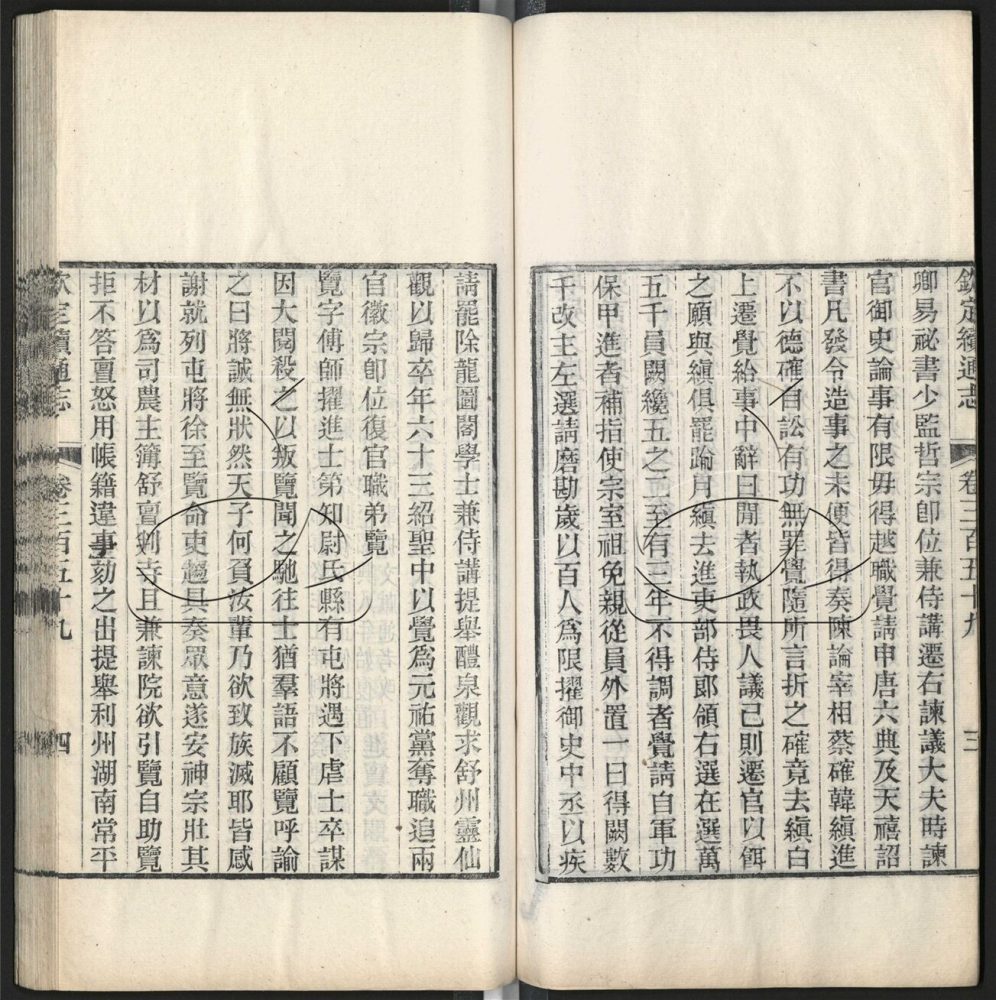 欽定續通志 卷三百五十九 三
卿易祕書少監哲宗卽位兼侍講遷右諫議大夫時諫
官御史論事有限毋得越職覺請申唐六典及天禧詔
書凡發令造事之未便皆得奏陳論宰相蔡確韓縝進
不以德確自訟有功無罪覺隨所言折之確竟去縝白
上遷覺給事中辭曰閒者執政畏人議己則遷官以餌
之願與縝俱罷踰月縝去進吏部侍郞領右選在選萬
五千員闕纔五之二至有三年不得調者覺請自軍功
保甲進者補指使宗室袒免親從員外置一日得闕數
千改主左選請磨勘歲以百人爲限擢御史中丞以疾
請罷除龍圖閣學士兼侍講提舉醴泉觀求舒州靈仙
觀以歸卒年六十三紹聖中以覺爲元祐黨奪職追兩
官徽宗卽位復官職弟覽
覽字傅師擢進士第知尉氏縣有屯將遇下虐士卒謀
因大閱殺之以叛覽聞之馳往士猶羣語不顧覽呼諭
之曰將誠無狀然天子何負汝輩乃欲致族滅耶皆感
謝就列屯將徐至覽命吏趨具奏眾意遂安神宗壯其
材以爲司農主簿舒亶判寺且兼諫院欲引覽自助覽
拒不答亶怒用帳籍違事劾之出提舉利州湖南常平
欽定續通志 卷三百五十九 四